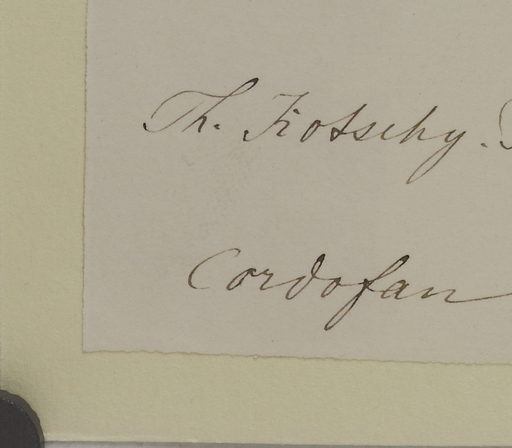 Th. Kotschy.
Cordofan